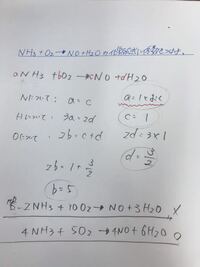 NH3+O2→NO+H2O
aNH3+bO2→cNO+dH2O
Nについて a=c a=1とおく
Hについて 3a=2d c=1
Oについて 2b=c+d 2d=3×1
2b=1+3/2 d=3/2
b=5
2NH3+10O2→NO+3H2O ×
4NH3+5O2→4NO+6H2O ○